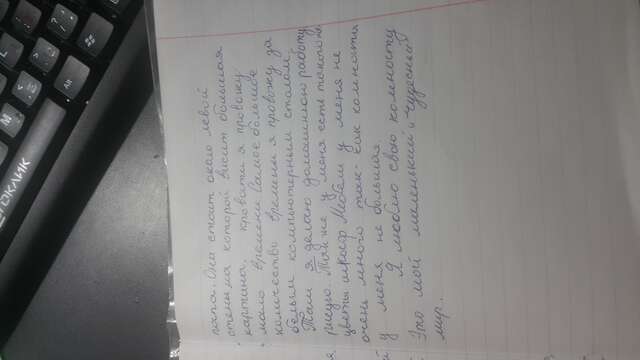 ОКЛИК
M
Alt
папа. Она стоит около левой
стены на которой висит большая
картина. кровати я провожу
мало времени Самое большое
количество времены я провожу за
белым компьютерным столом.
Там я делаю домашнюю работу
рисую. Также у меня есть такого же
цветы шкаф Мебели у меня не
очень много так-как комната
у меня не большая.
Я люблю свою комнату
Это мой маленький и чудесный
мир.